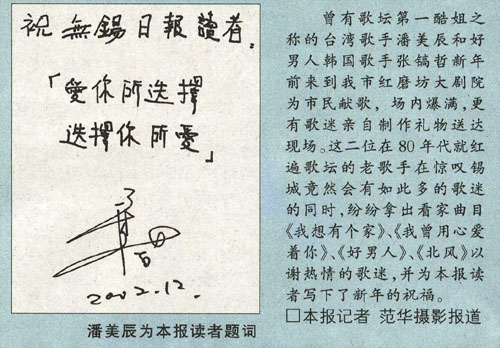 祝 無錫日報讀者.
「愛你所选擇
选擇你所愛」
2002.12.
潘美辰为本报读者题词
曾有歌坛第一酷姐之
称的台湾歌手潘美辰和好
男人韩国歌手张镐哲新年
前来到我市红磨坊大剧院
为市民献歌，场内爆满，更
有歌迷亲自制作礼物送达
现场。这二位在80年代就红
遍歌坛的老歌手在惊叹锡
城竟然会有如此多的歌迷
的同时，纷纷拿出看家曲目
《我想有个家》、《我曾用心爱
着你》、《好男人》、《北风》以
谢热情的歌迷，并为本报读
者写下了新年的祝福。
□本报记者 范华摄影报道